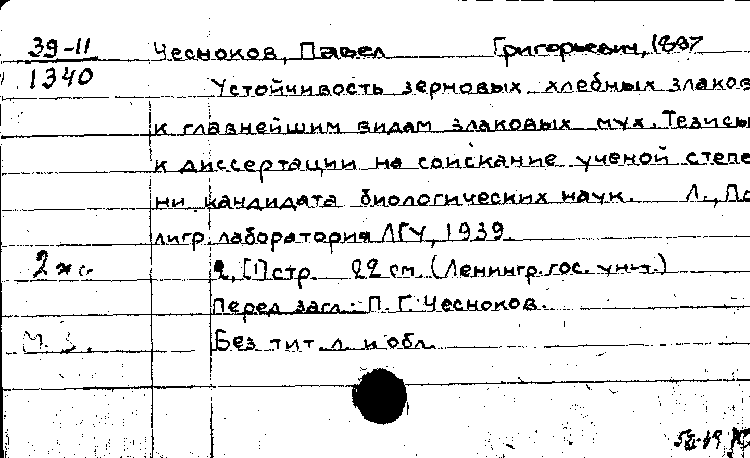 39-11 Чесноков, Павел Григорьевич, 1897
1340 Устойчивость зерновых хлебных злаков
к главнейшим видам злаковых мух. Тезисы
к диссертации на соискание ученой степе
ни кандидата биологических наук. Л., По
лигр. лаборатория ЛГУ, 1939.
2 экз. 2, [1] стр. 22 см. (Ленингр. гос. унит.)
Перед загл.: П. Г. Чесноков.
М. З. Без тит. л. и обл.